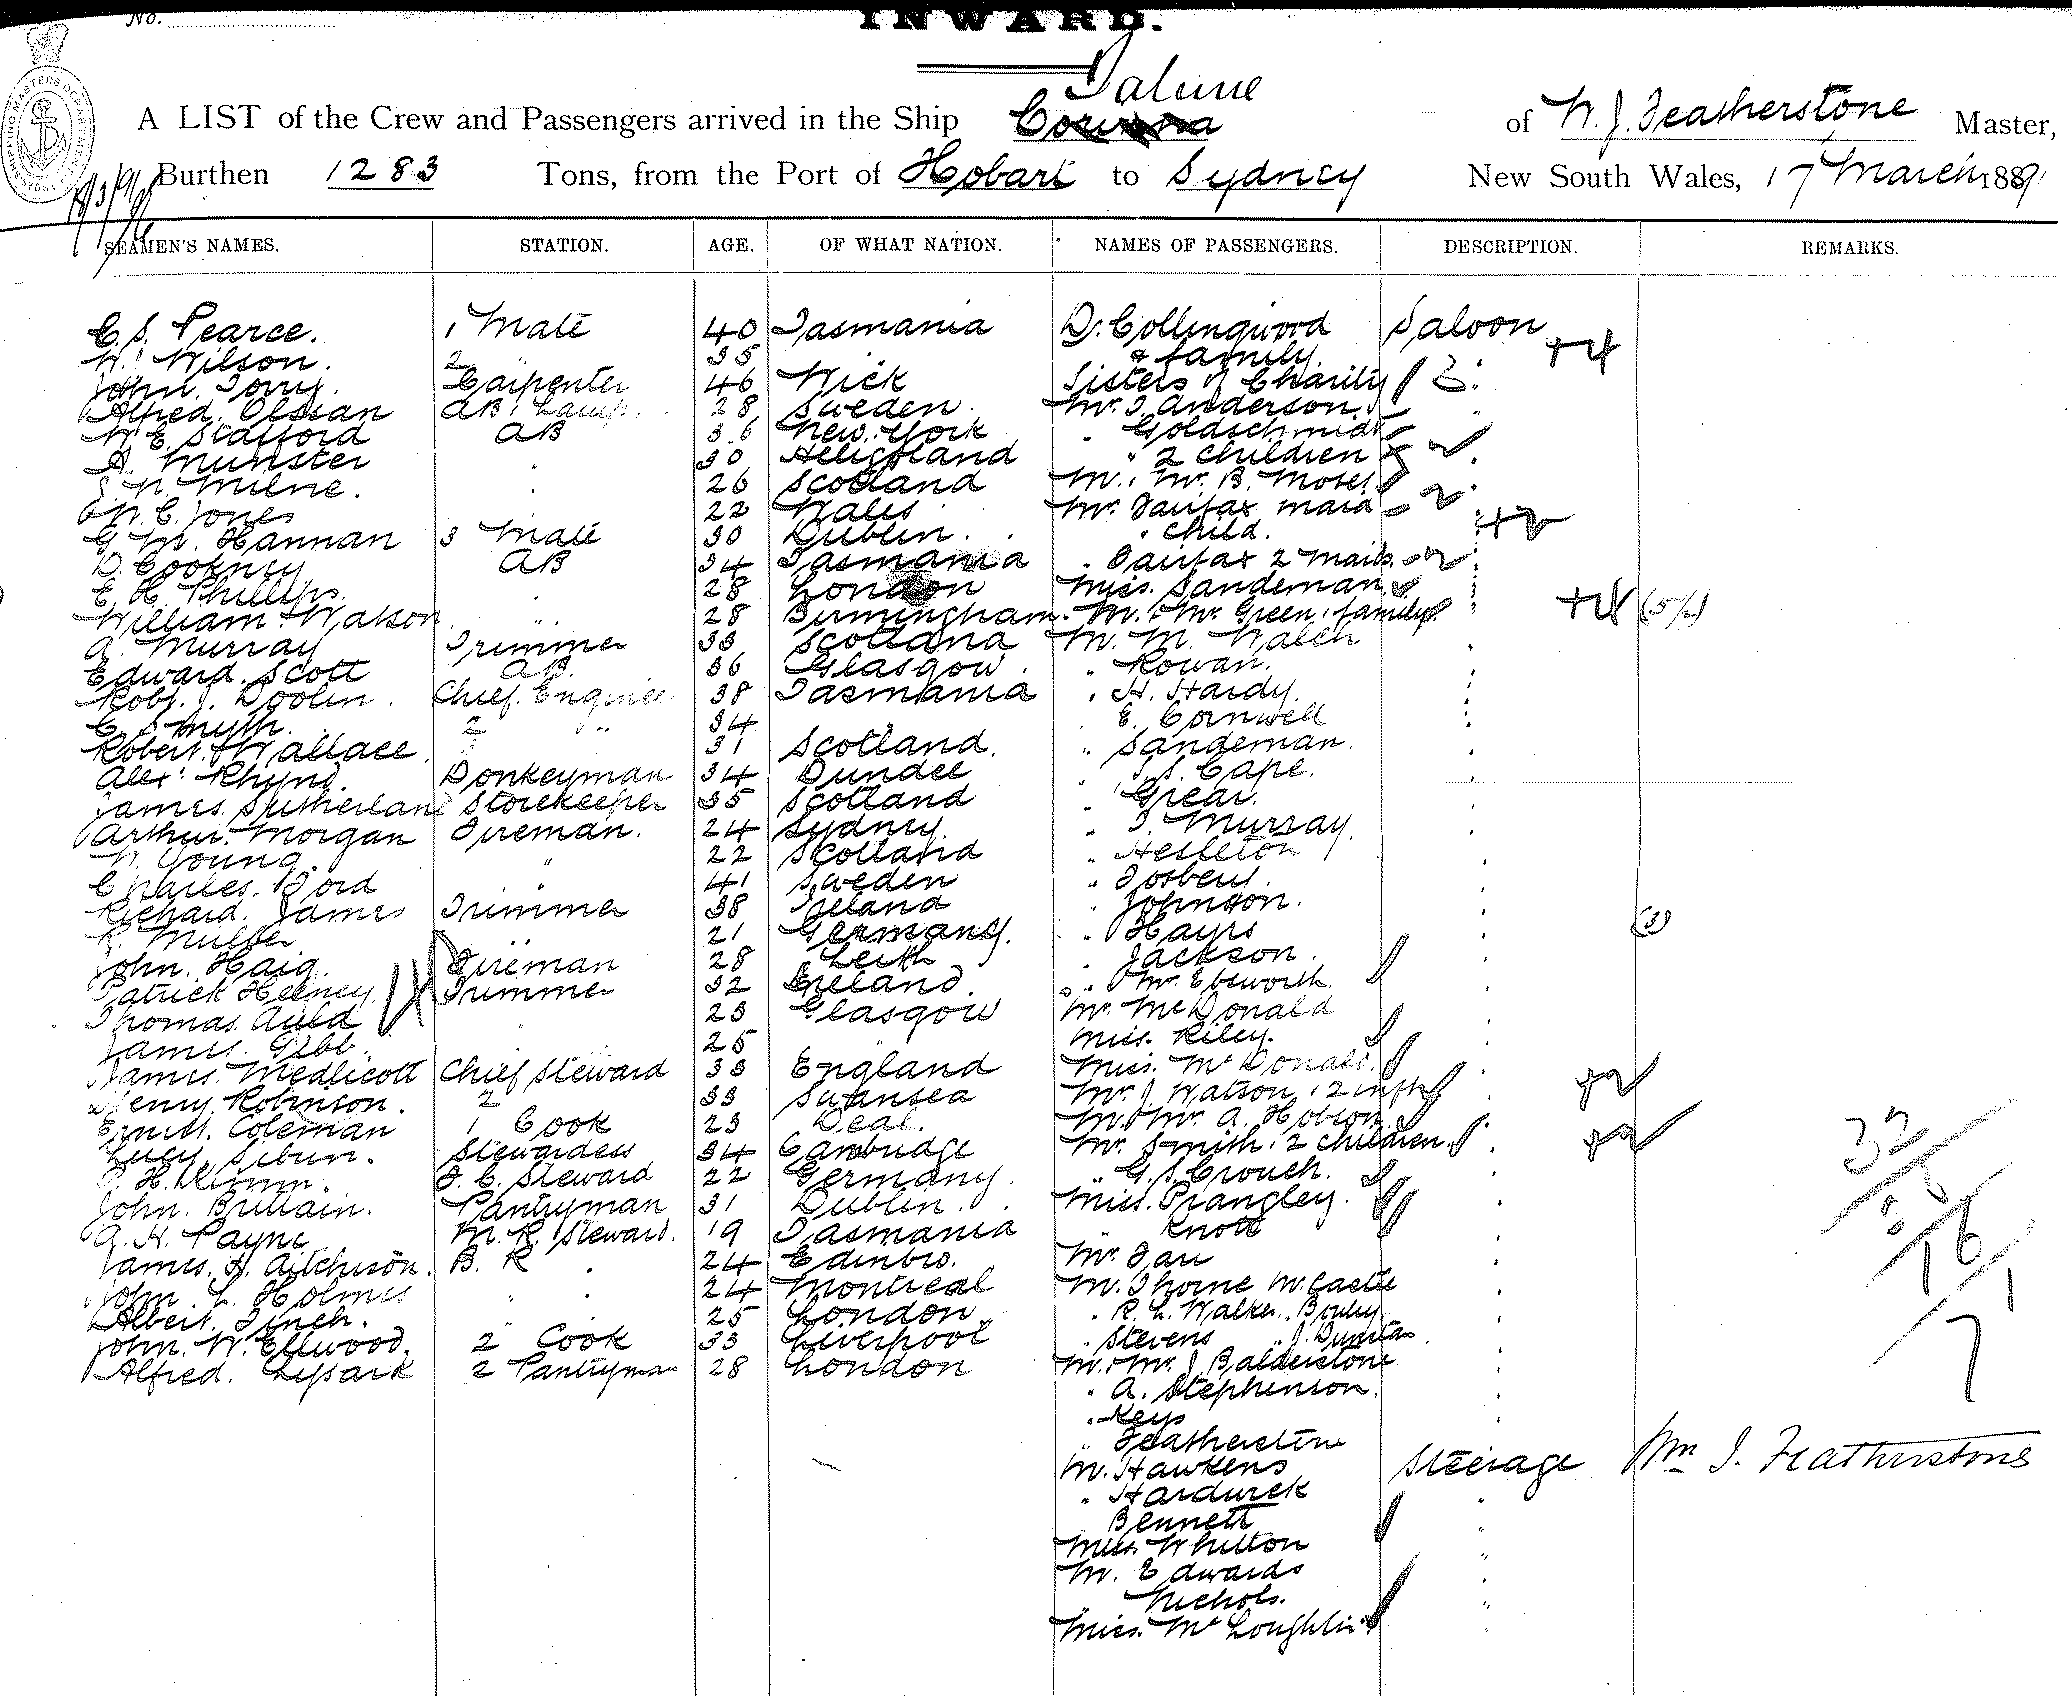 No.
INWARD.
Talune
A LIST of the Crew and Passengers arrived in the Ship of W. J. Featherstone Master,
Burthen 1283 Tons, from the Port of Hobart to Sydney New South Wales, 17 March 1889
SEAMEN'S NAMES. STATION. AGE. OF WHAT NATION. NAMES OF PASSENGERS. DESCRIPTION. REMARKS.
C. S. Pearce. 1 Mate 40 Tasmania Dr. Collingwood Saloon +4
W. Wilson. 2 " 35 & family.
John Torry. Carpenter 46 Wick Sisters of Charity 3.
Alfred Olssan AB. Lamp. 28 Sweden. Mr. J. Anderson.
W. E. Stafford AB 36 New York " Goldschmidt
A. Munster " 30 Heligoland " 2 children
J. W. Milne. " 26 Scotland M. Mr. B. Moses
W. C. Jones 22 Wales Mr. Fairfax maid
G. M. Hannan 3 Mate 30 Dublin. " child. +2
D. Cookney AB 34 Tasmania " Fairfax 2 maids.
E. H. Phillips. " 28 London Miss. Sandeman
William Watson " 28 Birmingham. M. & Mr. Green, family +4
A. Murray Trimmer 33 Scotland M. M. Walch
Edward. Scott AB. 36 Glasgow. " Rowan.
Robt. J. Doolin. Chief. Engineer 38 Tasmania " H. Hardy.
C. Smyth. 2 " 34 E. Cornwell
Robert. Wallace. 3 31 Scotland. " Sandeman.
Alex. Rhynd. Donkeyman 34 Dundee " Cape.
James. Sutherland Storekeeper 35 Scotland " Grear.
Arthur. Morgan Fireman. 24 Sydney. " J. Murray.
W. Young. " 22 Scotland " Hesleton
Charles. Ford 41 Sweden " Forbens.
Richard. James Trimmer 38 Ireland " Johnson.
Muller 21 Germany. " Hays
John. Haig. Fireman 28 Leith " Jackson.
Patrick Heeney Trimmer 32 Ireland. " Mr. Ebsworth.
Thomas. Auld 23 Glasgow Mr. McDonald
James. Gibb. " 25 Miss. Riley.
James. Medlicott Chief Steward 33 England Miss. McDonald.
Henry. Robinson. 2 33 Swansea Mr. J. Watson, 2 infts +2
Ernest. Coleman 1 Cook 23 Deal. M. & Mr. A. Hobson.
Lucy Sibun. Stewardess 34 Cambridge Mr. Smith, 2 children. +2
H. Klimm. F. C. Steward 22 Germany. " G. S. Crouch.
John. Brittain. Pantryman 31 Dublin. Miss. Prangley.
A. H. Payne M. R. Steward. 19 Tasmania " Knott
James. H. Aitchison. B. R " 24 Edinbro. Mr. Tau
John. L. Holmes " " 24 Montreal M. Thorne M. Castle
Albert. Finch. " " 25 London. " R. L. Walker
John. W. Ellwood. 2 Cook 33 Liverpool " Stevens " J. Dunstan.
Alfred. Lipark 2 Pantryman 28 London M. & Mr. J. Balderstone
" A. Stephenson.
" Keys
" Featherstone
M. Hawkens Steerage Wm J. Featherstone
" Hardwick
Bennett
Miss. Whitton
M. Edwards
Nichols.
Miss. McLoughlin
32
16
7